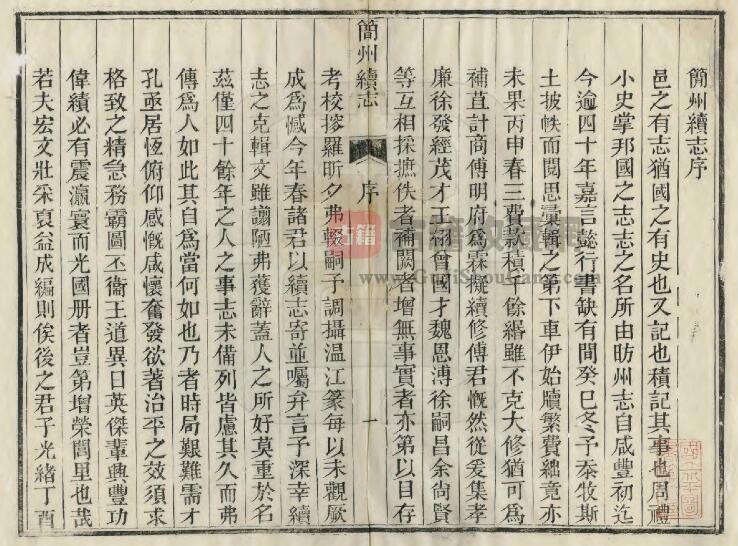 簡州續志序
邑之有志猶國之有史也又記也積記其事也周禮
小史掌邦國之志志之名所由昉州志自咸豐初迄
今逾四十年嘉言懿行書缺有間癸巳冬予忝牧斯
土披帙而閱思彙輯之第下車伊始牘繁費絀竟亦
未果丙申春三費款積千餘緡雖不克大修猶可為
補苴計商傅明府為霖擬續修傅君慨然從爰集孝
廉徐發經茂才王 曾國才魏恩溥徐嗣昌余尚賢
等互相採摭佚者補闕者增無事實者亦第以目存
簡州續志 序 一
考校搜羅昕夕弗輟嗣予調攝溫江篆每以未觀厥
成為憾今年春諸君以續志寄並囑弁言予深幸續
志之克輯文雖譾陋弗獲辭蓋人之所好莫重於名
茲僅四十餘年之人之事志未備列皆慮其久而弗
傳為人如此其自為當何如也乃者時局艱難需才
孔亟居恆俯仰感慨咸懷奮發欲著治平之效須求
格致之精急務霸圖丕衞王道異日英傑輩興豐功
偉績必有震瀛寰而光國册者豈第增榮閭里也哉
若夫宏文壯采裒益成編則俟後之君子光緒丁酉
古籍
www.GujiShouCang.com